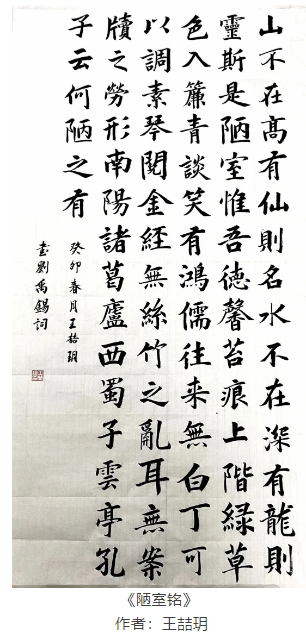 山不在髙有仙則名水不在深有龍則
靈斯是陋室惟吾徳馨苔痕上階緑草
色入簾青談笑有鴻儒往来無白丁可
以調素琴閱金經無絲竹之亂耳無案
牘之勞形南陽諸葛廬西蜀子雲亭孔
子云何陋之有
癸卯春月王喆玥
書劉禹錫詞
《陋室铭》
作者：王喆玥